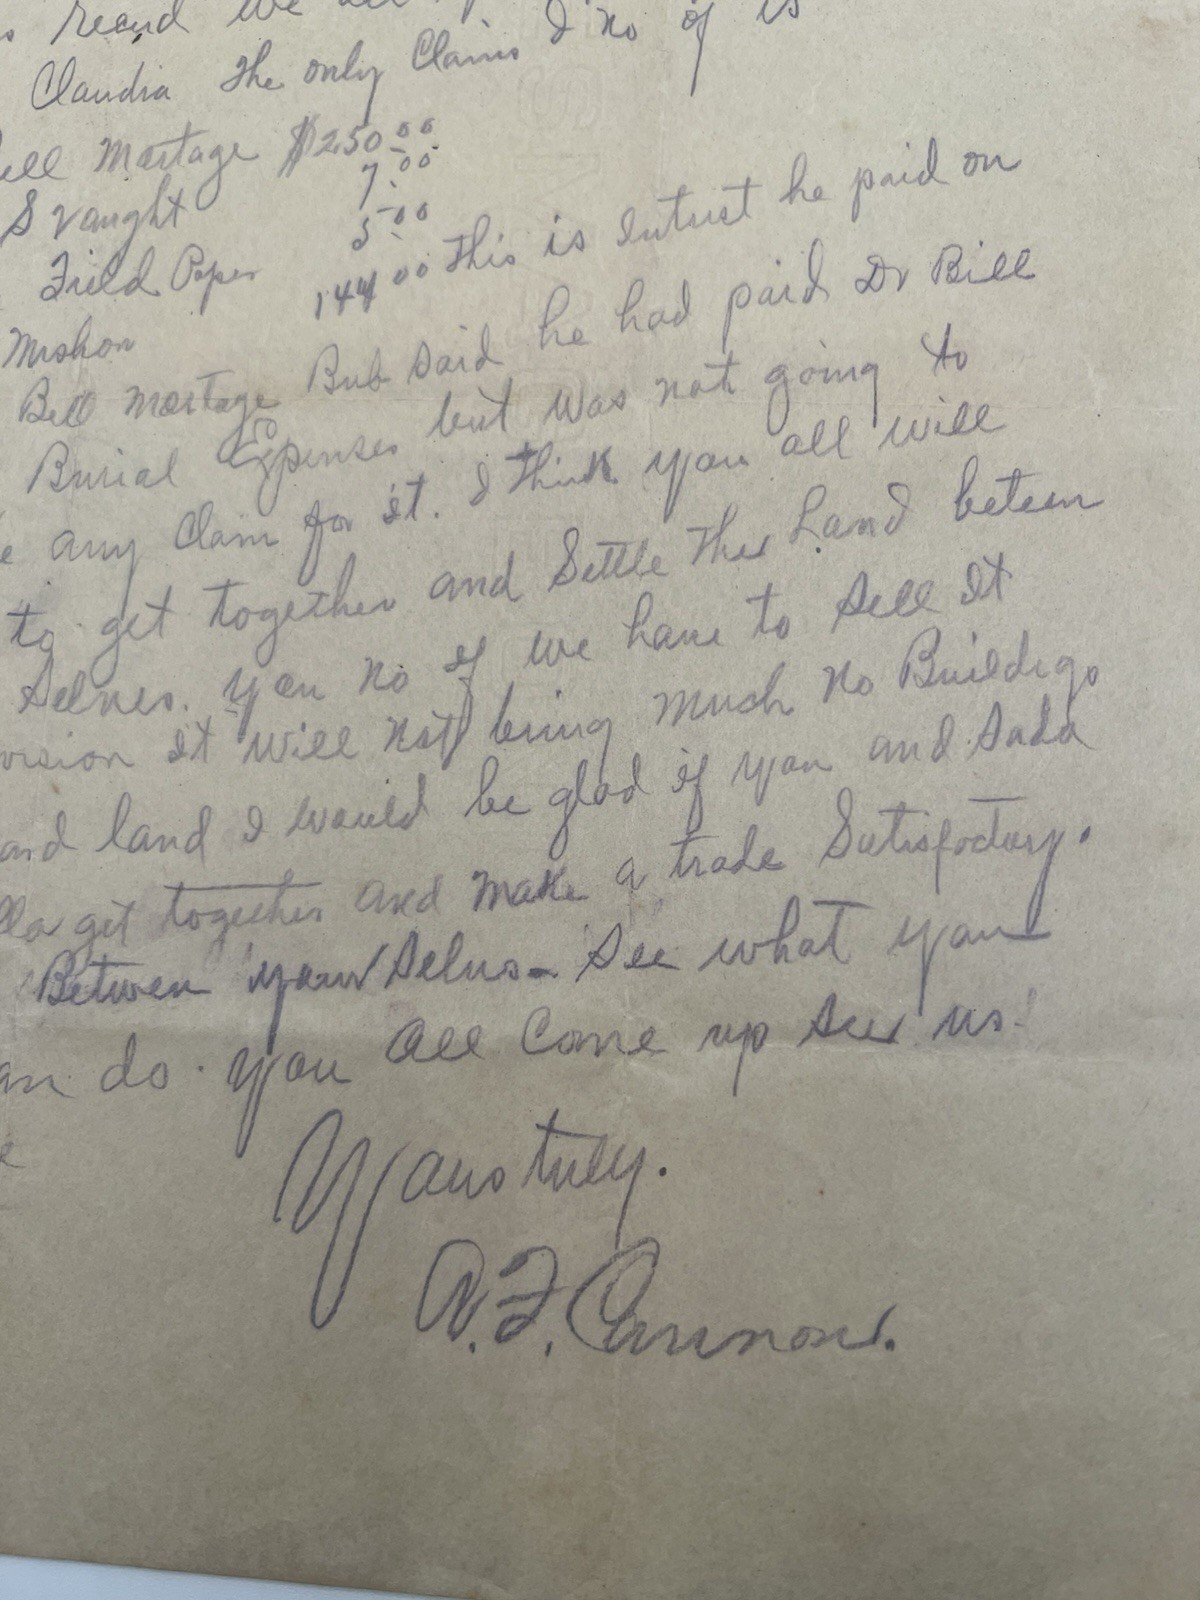 Recind we all
Claudia The only Claims I no of is
ell Mortage $250.00
S Vaught 7.00
Field Paper 5.00
Mishon 144.00 This is Intrust he paid on
Bell Mortage Bub Said he had paid Dr Bill
Burial Expenses but was not going to
any Claim for it. I think you all will
to get together and Settle The Land beteen
Selves. you no if we have to Sell It
vision It will not bring much no Buildigs
and land I would be glad if you and Sada
lla get together and make a trade Satisfactory.
Between your Selves - See what you
an do. you all Come up See us.
Yours truly.
A. F. Cannon.